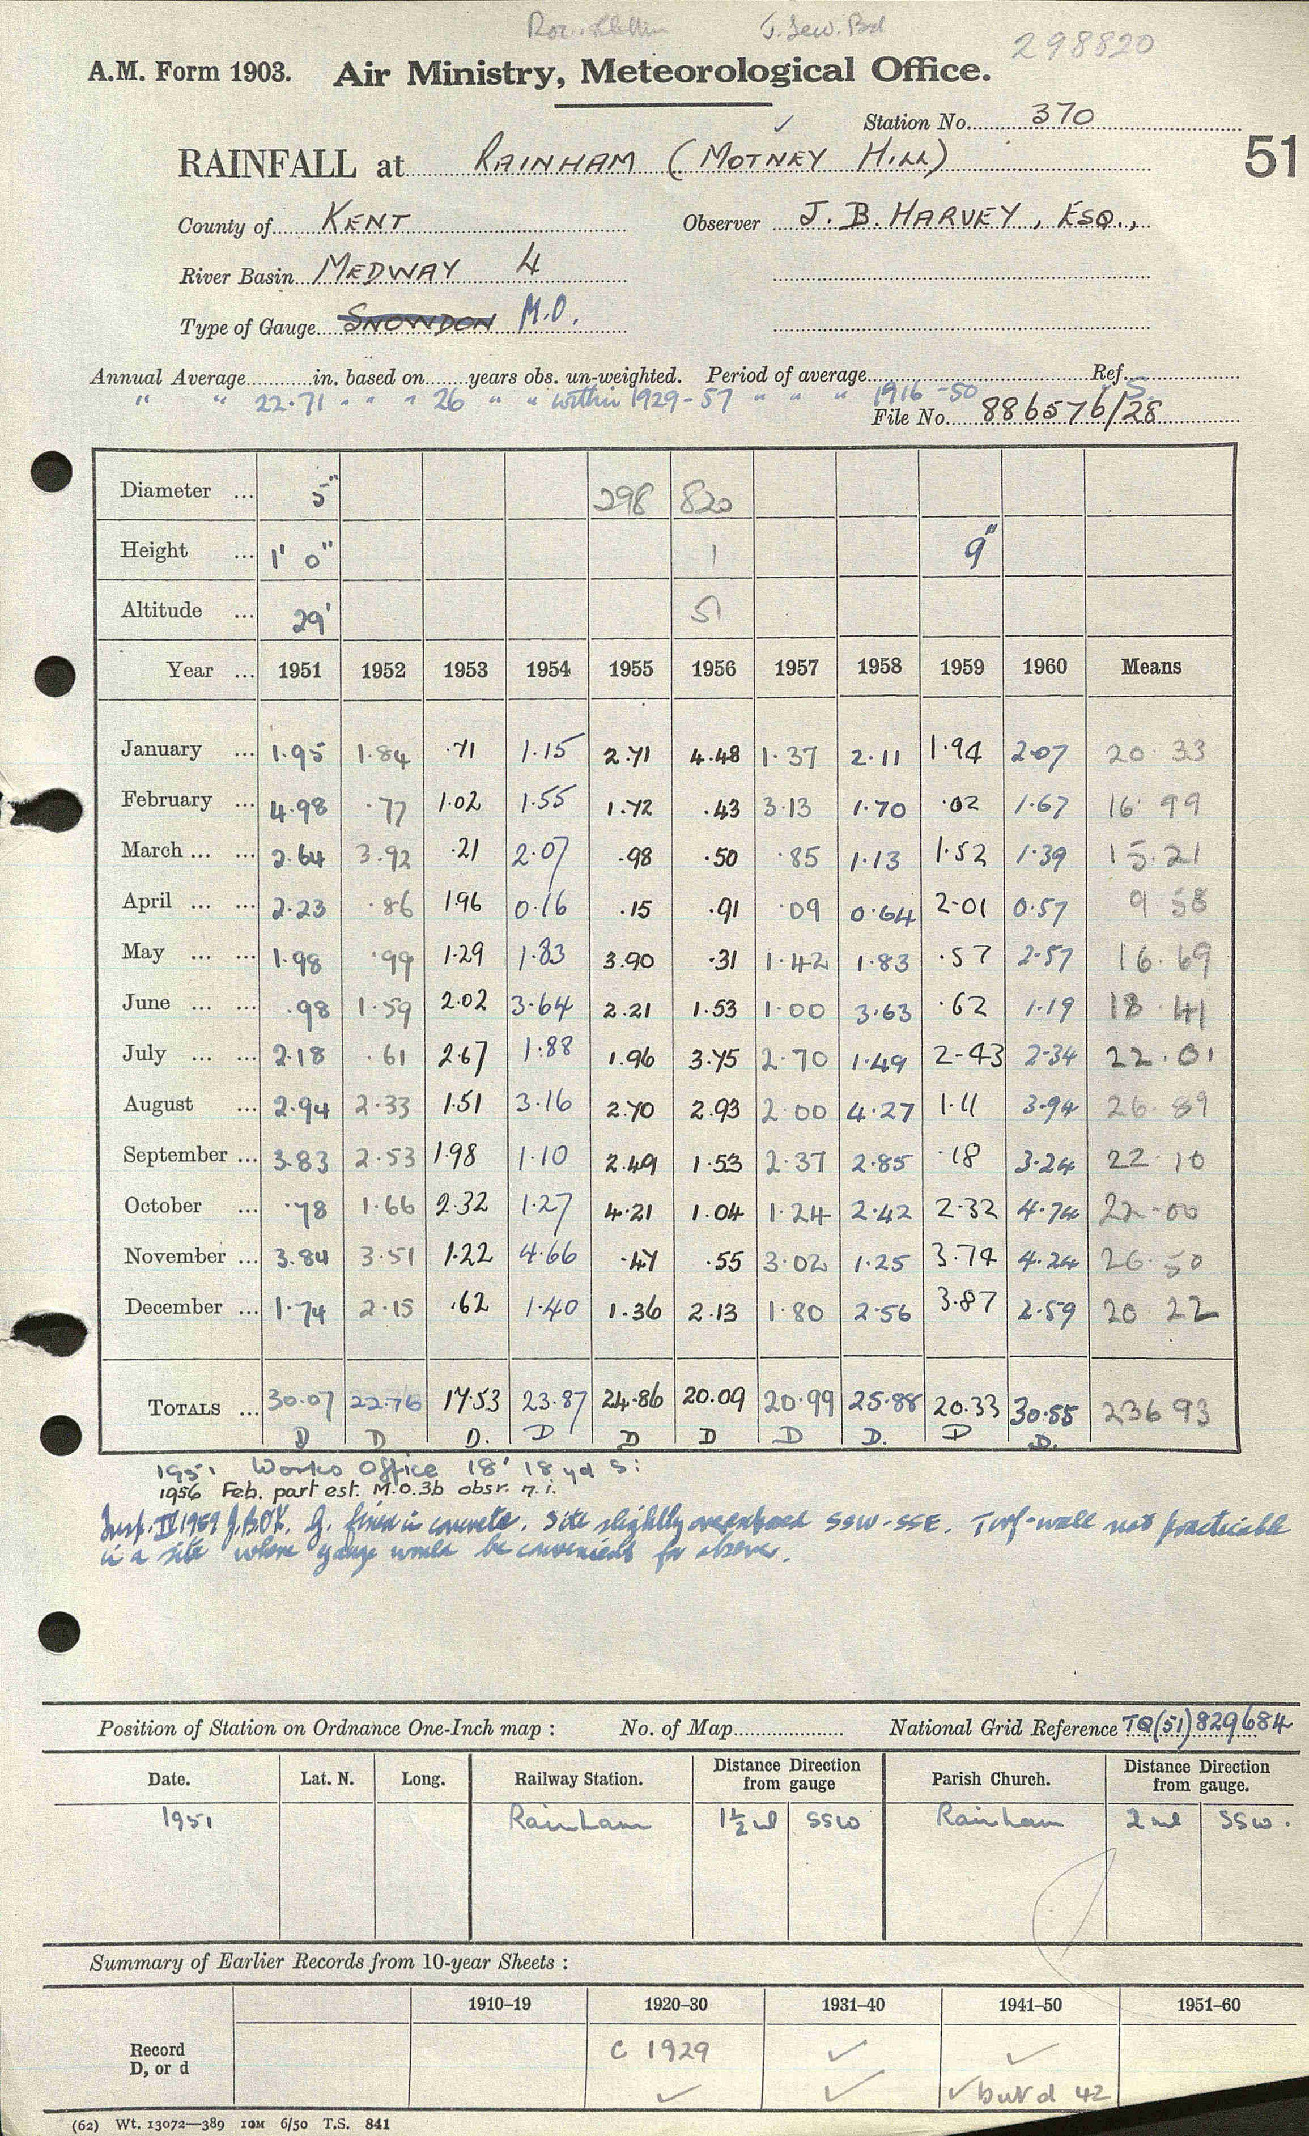 T. Sew. Bd
298820
A.M. Form 1903. Air Ministry, Meteorological Office.
Station No. 370
51
RAINFALL at RAINHAM (MOTNEY HILL) ✓
County of KENT Observer J. B. HARVEY, ESQ.,
River Basin MEDWAY 4
Type of Gauge SNOWDON M.O.
Annual Average in. based on years obs. un-weighted. Period of average Ref. S.
" " 22.71 " " " 26 " " within 1929-57 " " " 1916-50
File No. 886576/28
Diameter ... 5" 298 820
Height ... 1' 0" 1 9"
Altitude ... 29' 51
Year ... 1951 1952 1953 1954 1955 1956 1957 1958 1959 1960 Means
January ... 1.95 1.84 .71 1.15 2.71 4.48 1.37 2.11 1.94 2.07 20 33
February ... 4.98 .77 1.02 1.55 1.72 .43 3.13 1.70 .02 1.67 16 99
March ... ... 2.64 3.92 .21 2.07 .98 .50 .85 1.13 1.52 1.39 15.21
April ... ... 2.23 .86 1.96 0.16 .15 .91 .09 0.64 2.01 0.57 9 58
May ... ... 1.98 .99 1.29 1.83 3.90 .31 1.42 1.83 .57 2.57 16.69
June ... ... .98 1.59 2.02 3.64 2.21 1.53 1.00 3.63 .62 1.19 18.41
July ... ... 2.18 .61 2.67 1.88 1.96 3.75 2.70 1.49 2.43 2.34 22.01
August ... 2.94 2.33 1.51 3.16 2.70 2.93 2.00 4.27 1.11 3.94 26.89
September ... 3.83 2.53 1.98 1.10 2.49 1.53 2.37 2.85 .18 3.24 22 10
October ... .78 1.66 2.32 1.27 4.21 1.04 1.24 2.42 2.32 4.74 22.00
November ... 3.84 3.51 1.22 4.66 .47 .55 3.02 1.25 3.74 4.24 26.50
December ... 1.74 2.15 .62 1.40 1.36 2.13 1.80 2.56 3.87 2.59 20 22
TOTALS ... 30.07 22.76 17.53 23.87 24.86 20.09 20.99 25.88 20.33 30.55 236 93
D D D. D D D D D. D D.
1951 Works Office 18' 18 yd S:
1956 Feb. part est. M.O.3b obsr. n.i.
Insp. IV 1959 J.B.O'K. G. fixed in concrete. Site slightly overexposed SSW-SSE. Turf-wall not practicable
in a site where gauge would be convenient for observer.
Position of Station on Ordnance One-Inch map : No. of Map National Grid Reference TQ(51)829684
Date. Lat. N. Long. Railway Station. Distance Direction from gauge Parish Church. Distance Direction from gauge.
1951 Rainham 1½ ml SSW Rainham 2 ml SSW.
Summary of Earlier Records from 10-year Sheets :
1910–19 1920–30 1931–40 1941–50 1951–60
Record C 1929 ✓ ✓
D, or d ✓ ✓ ✓ but d 42
(62) Wt. 13072—389 10M 6/50 T.S. 841